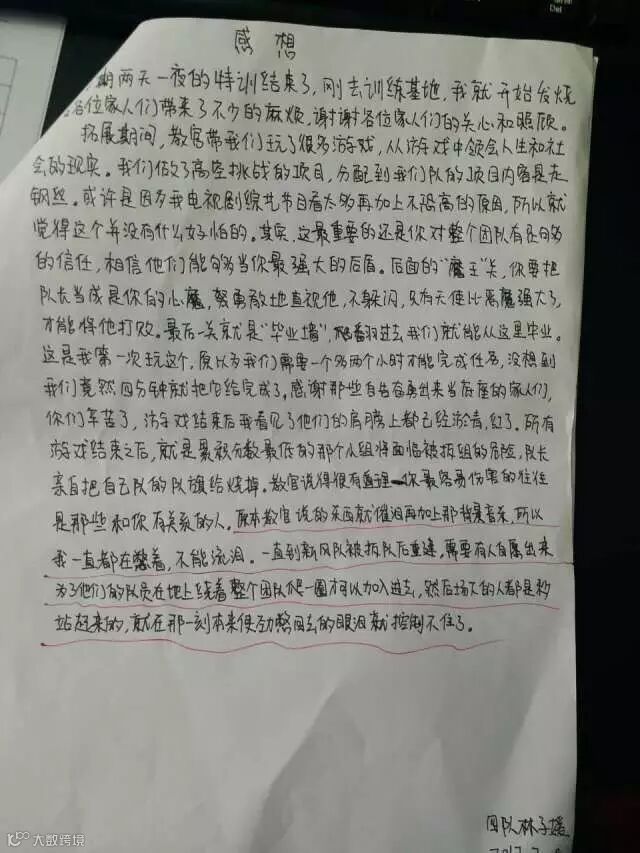 Del
感想
期两天一夜的特训结束了,刚去训练基地,我就开始发烧
各位家人们带来了不少的麻烦,谢谢各位家人们的关心和照顾。
拓展期间,教官带我们玩了很多游戏,从游戏中领会人生和社
会的现实。我们做了高空挑战的项目,分配到我们队的项目内容是走
钢丝。或许是因为我电视剧综艺节目看太多再加上不恐高的原因,所以就
觉得这个并没有什么好怕的。其实,这最重要的还是你对整个团队有足够
的信任,相信他们能够当你最强大的后盾。后面的“魔王”关,你要把
队长当成是你的心魔,勇敢地直视他,不躲闪,只有天使比恶魔强大了,
才能将他打败。最后一关就是“毕业墙”,翻过去,我们就能从这里毕业。
这是我第一次玩这个,原以为我们需要一个多两个小时才能完成任务,没想到
我们竟然四分钟就把它给完成了。感谢那些自告奋勇出来当底座的家人们,
你们辛苦了,游戏结束后我看见了他们的肩膀上都已经淤青,红了。所有
游戏结束之后,就是累积分数最低的那个小组将面临被拆组的危险,队长
亲自把自己队的队旗给烧掉。教官说得很有道理—你最容易伤害的往往
是那些和你有关系的人。原本教官说的东西就催泪再加上那背景音乐,所以
我一直都在憋着,不能流泪。一直到新风队被拆队后重建,需要有人自愿出来
为了他们的队员在地上绕着整个团队爬一圈才可以加入进去,然后场下的人都是秒
站起来的,就在那一刻本来使劲憋回去的眼泪就控制不住了。
团队林子媛
大数跨境